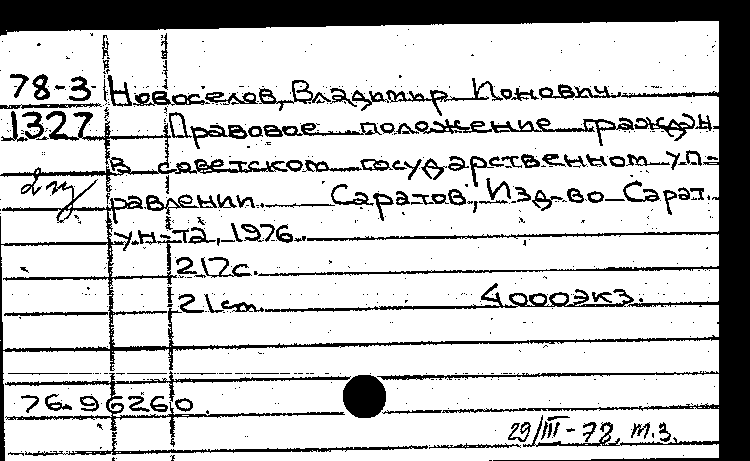 78-3 Новоселов, Владимир Ионович.
1327 Правовое положение граждан
в советском государственном уп-
равлении. Саратов, Изд-во Сарат.
ун-та, 1976.
217с.
21см. 4000экз.
76-96260.
29/III-78. т.з.